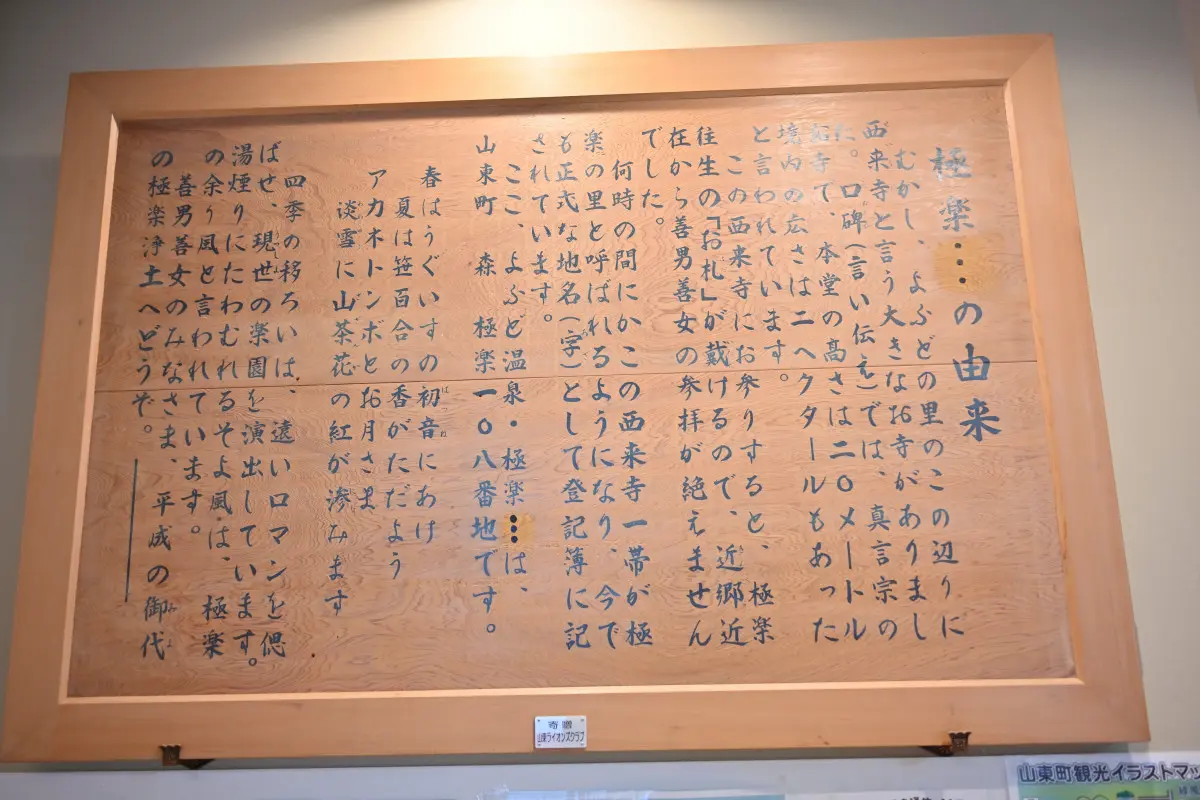 極楽…の由来
むかし、よぶどの里のこの辺りに
西来寺と言う大きなお寺がありまし
た。口碑(言い伝え)では、真言宗の
お寺で、本堂の高さは二〇メートル
境内の広さは二ヘクタールもあった
と言われています。
この西来寺にお参りすると、極楽
往生の「お札」が戴けるので、近郷近
在から善男善女の参拝が絶えません
でした。
何時の間にかこの西来寺一帯が極
楽の里と呼ばれるようになり、今で
も正式な地名(字)として登記簿に記
されています。
ここ、よぶど温泉・極楽…は、
山東町 森 極楽一〇八番地です。
春はうぐいすの初音にあけ
はつね
夏は笹百合の香がただよう
アカネトンボとお月さま
淡雪に山茶花の紅が滲みます
四季の移ろいは、遠いロマンを偲
ばせ、現世の楽園を演出しています。
湯煙りにたわむれるそよ風は、極楽
の余り風と言われています。
善男善女のみなさま、平成の御代
みよ
の極楽浄土へどうぞ。
寄贈
山東ライオンズクラブ
山東町観光イラストマッ